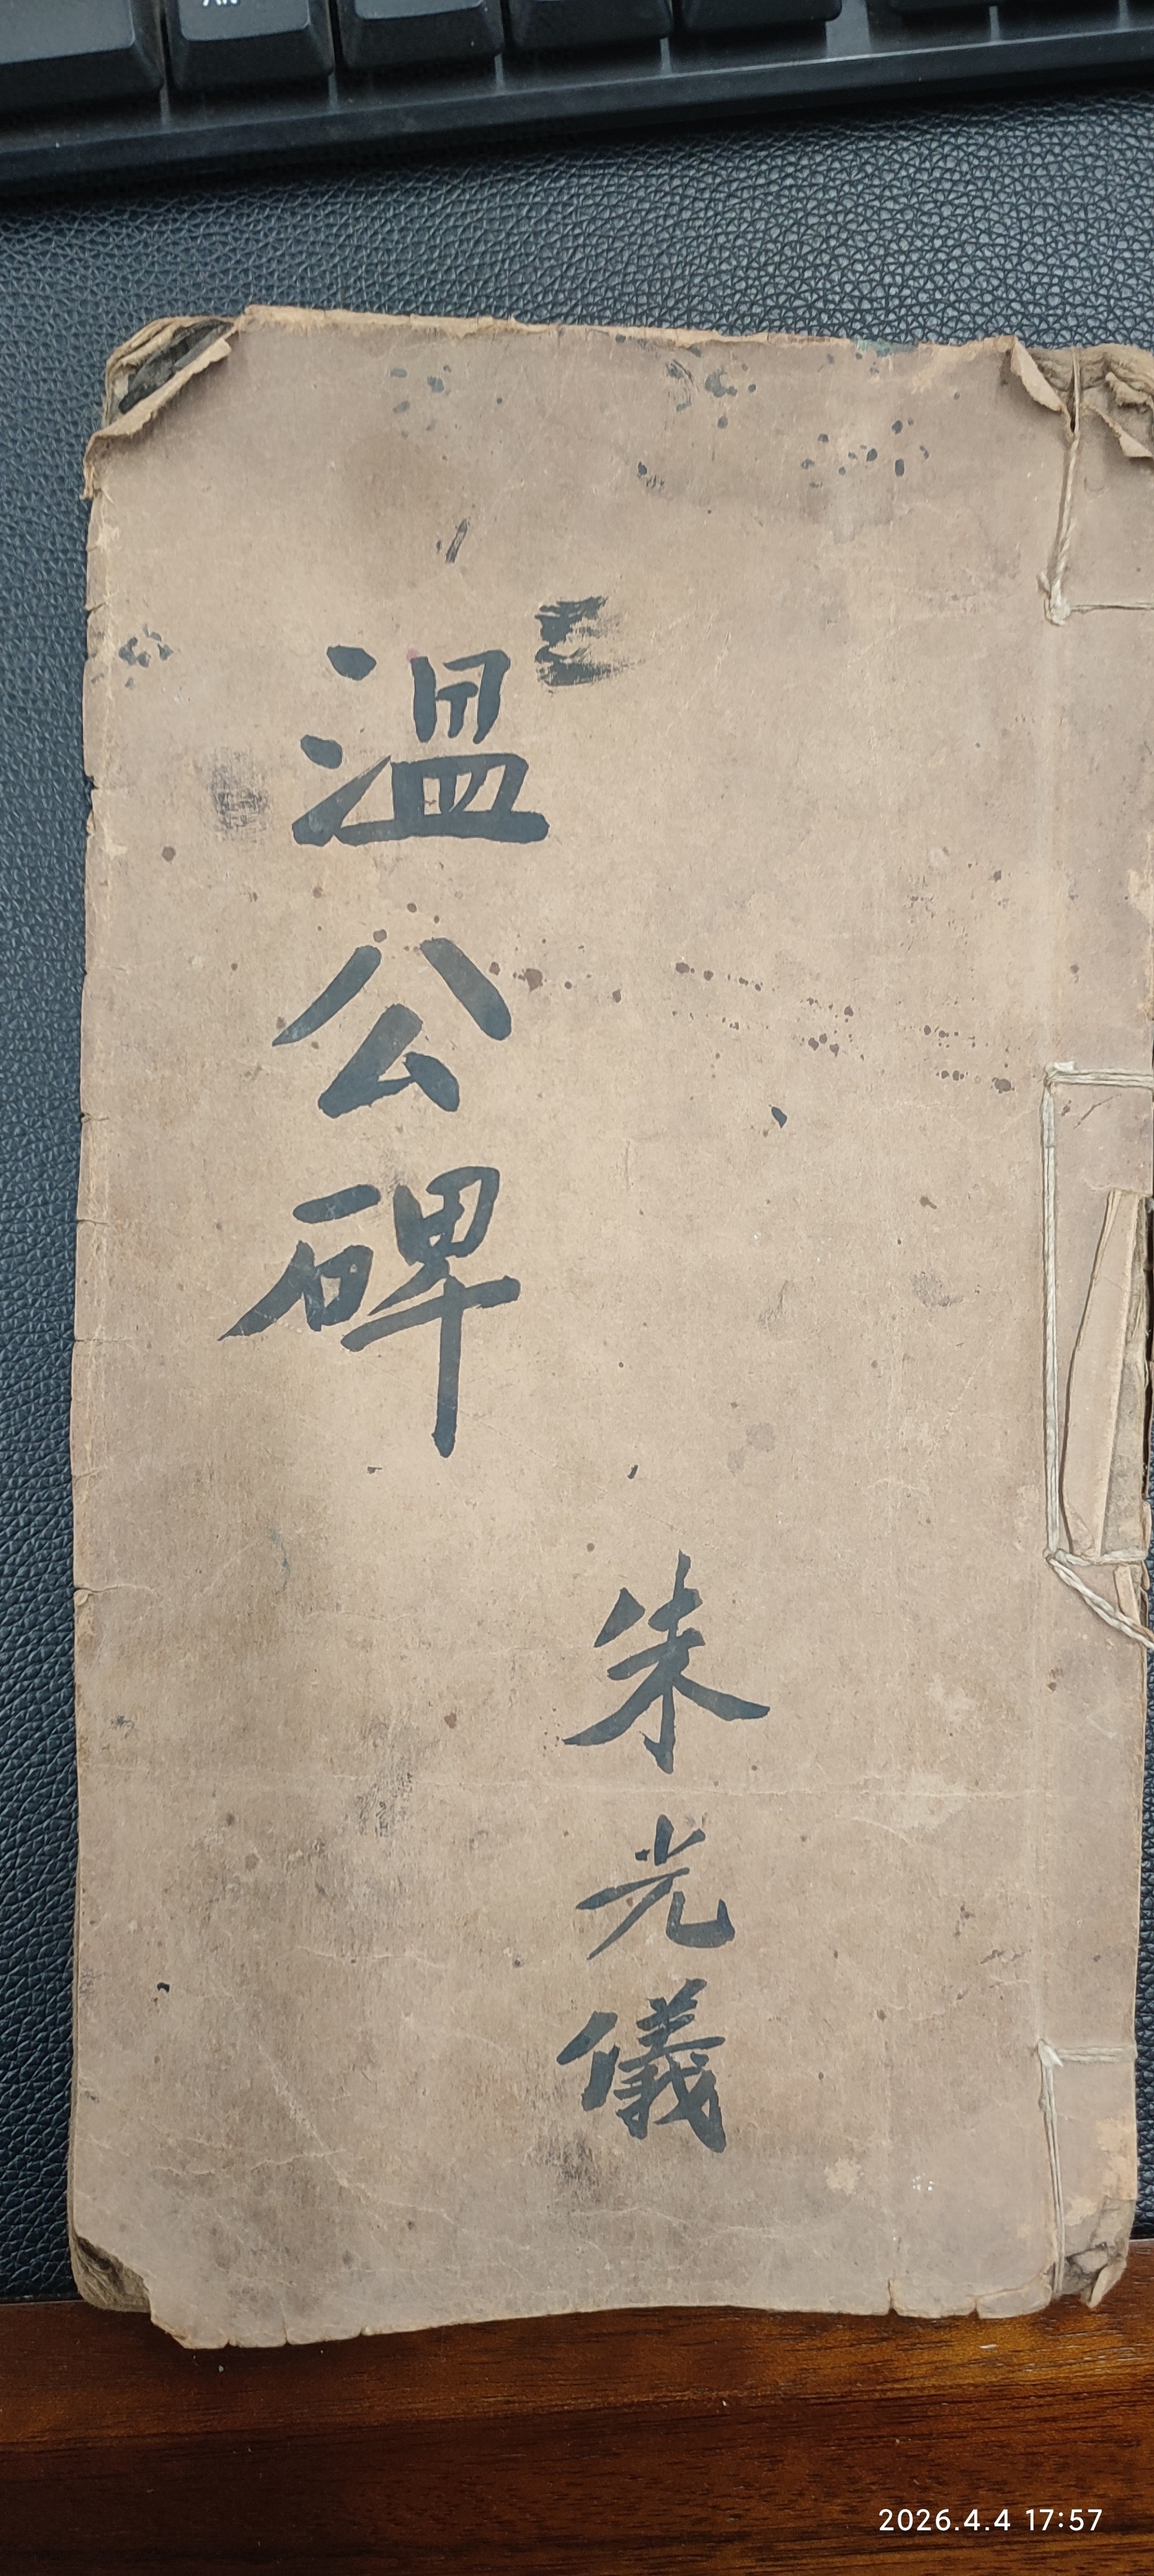 溫公碑
朱光儀
2026.4.4 17:57